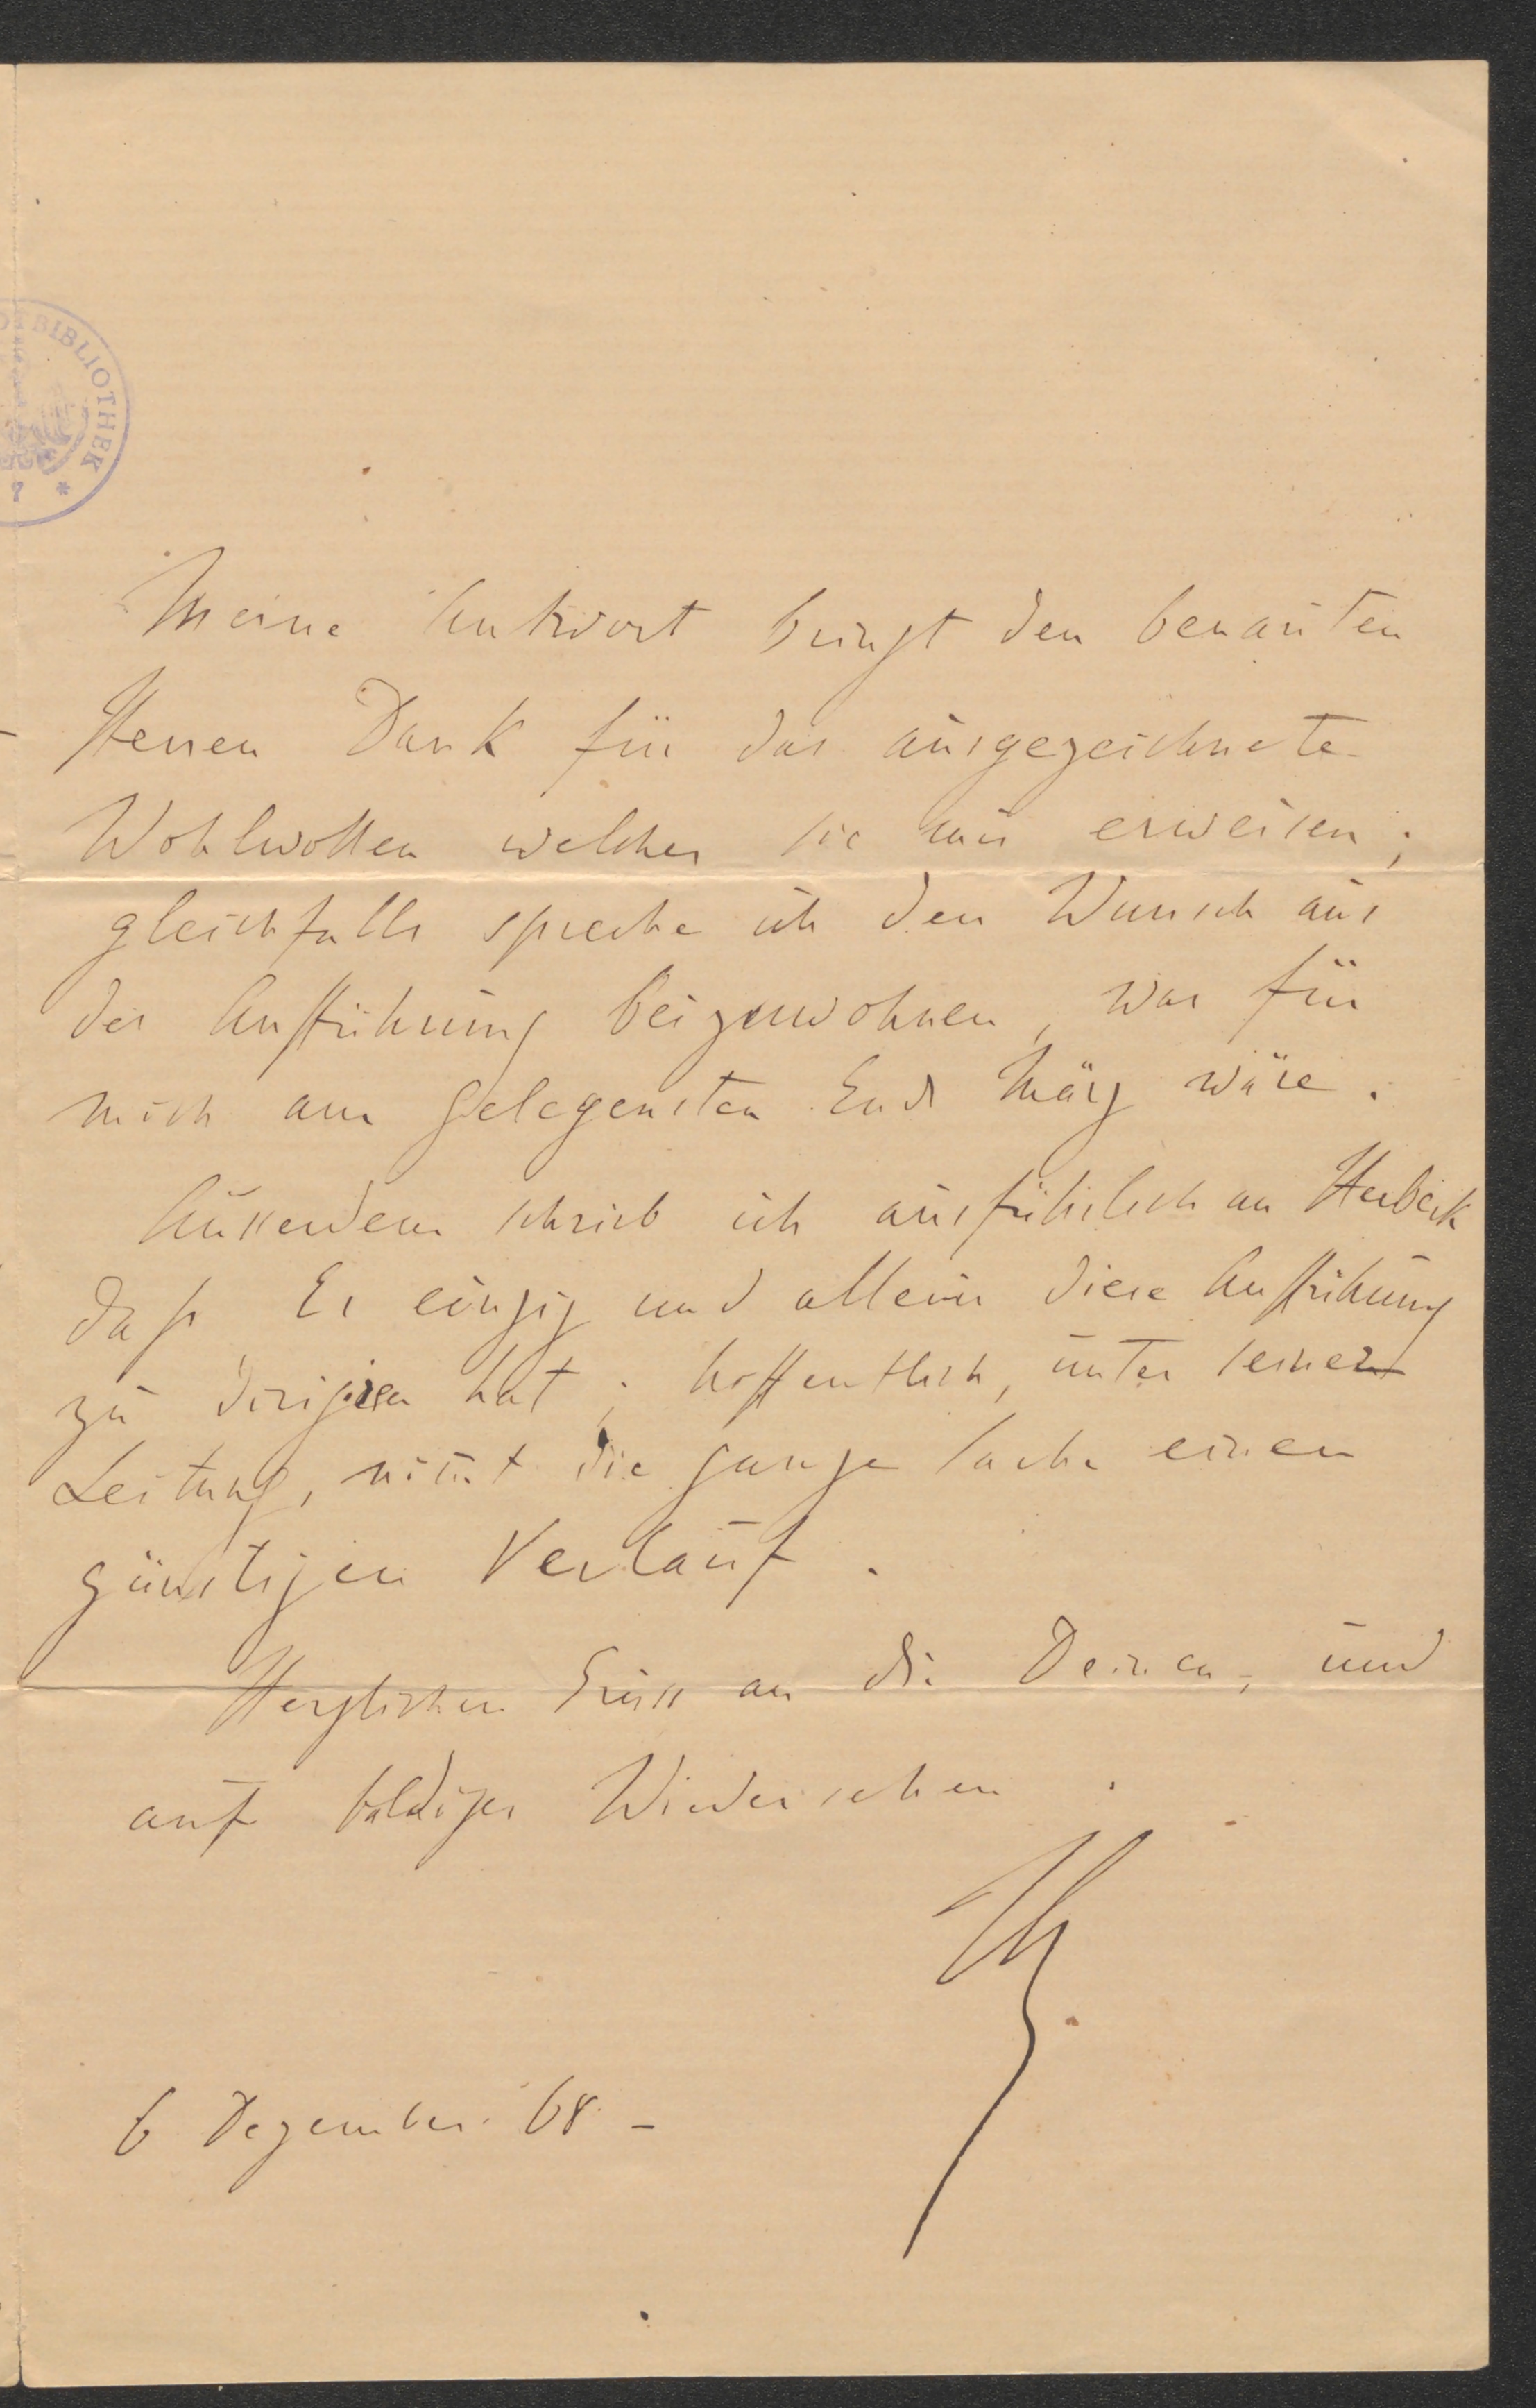 BIBLIOTHEK
Meine Antwort bringt den benan̄ten
Herren Dank für das ausgezeichnete
Wohlwollen welches sie mir erweisen;
gleichfalls spreche ich den Wunsch aus
der Aufführung beizuwohnen, was für
mich am gelegensten End März wäre.
Ausserdem schrieb ich ausführlich an Herbeck
dass Er einzig und allein diese Aufführung
zu dirigiren hat; hoffentlich, unter seiner
Leitung, nim̄t die ganze Sache einen
günstigen Verlauf.
Herzlichen Gruss an die Deinen, und
auf baldiges Wiedersehen.
6 Dezember 68 –